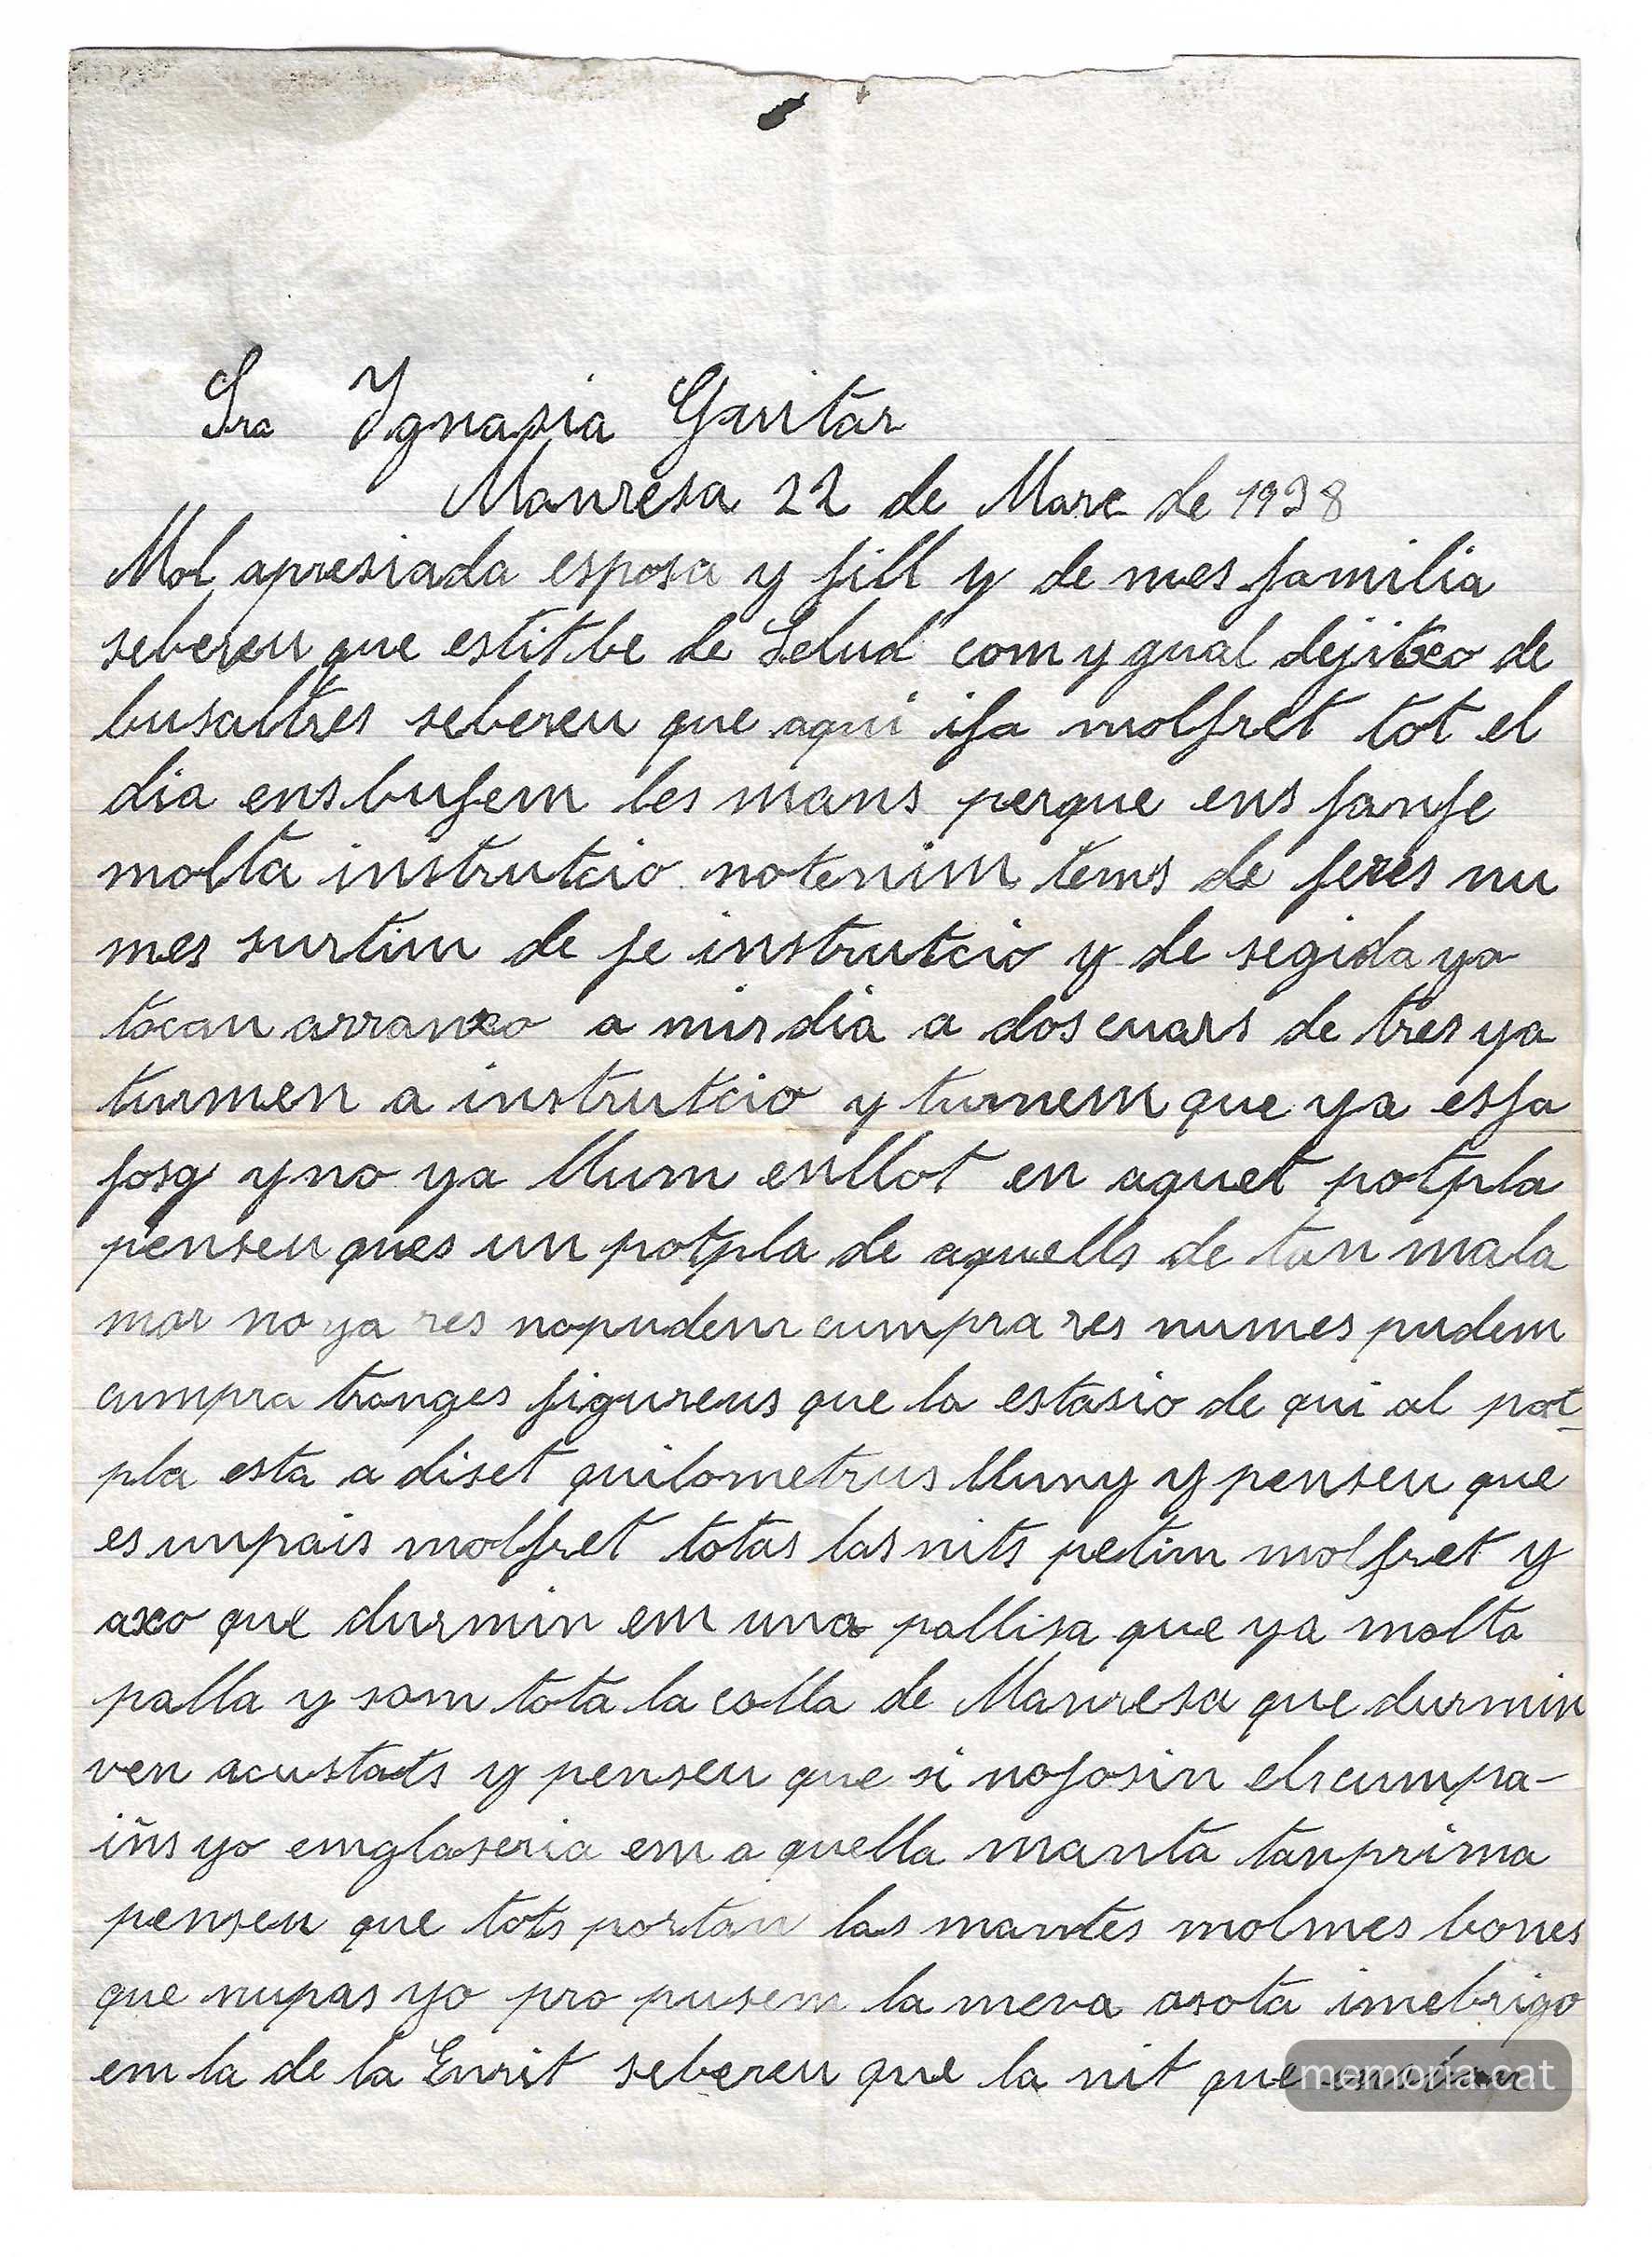 Sra Ygnasia Guitar
Manresa 22 de Marc de 1938
Mol apresiada esposa y fill y de mes familia
sebereu que estit be de Selud com y gual dejitxo de
busaltres sebereu que aqui ifa molfret tot el
dia ens bufem les mans perque ens fanfe
molta instrutcio notenim tems de feres nu
mes surtim de fe instrutcio y de segida ya
tocan arranxo a mirdia a dos cuars de tres ya
turnem a instrutcio y turnem que ya esfa
fosg yno ya llum enllot en aquet potpla
penseu ques un potpla de aquells de tan mala
mor no ya res nopudem cumpra res numes pudem
cumpra tranges figureus que la estasio de qui al pot
pla esta a diset quilometrus lluny y penseu que
es unpais molfret totas las nits petim molfret y
axo que durmin em una pallisa que ya molta
palla y som tota la colla de Manresa que durmin
ven acustats y penseu que si nofosin elscumpa-
iñs yo emglaseria em a quella manta tanprima
penseu que tots portan las mantes molmes bones
que nupas yo pro pusem la meva asota imebrigo
em la de la Enrit sebereu que la nit que
memoria.cat